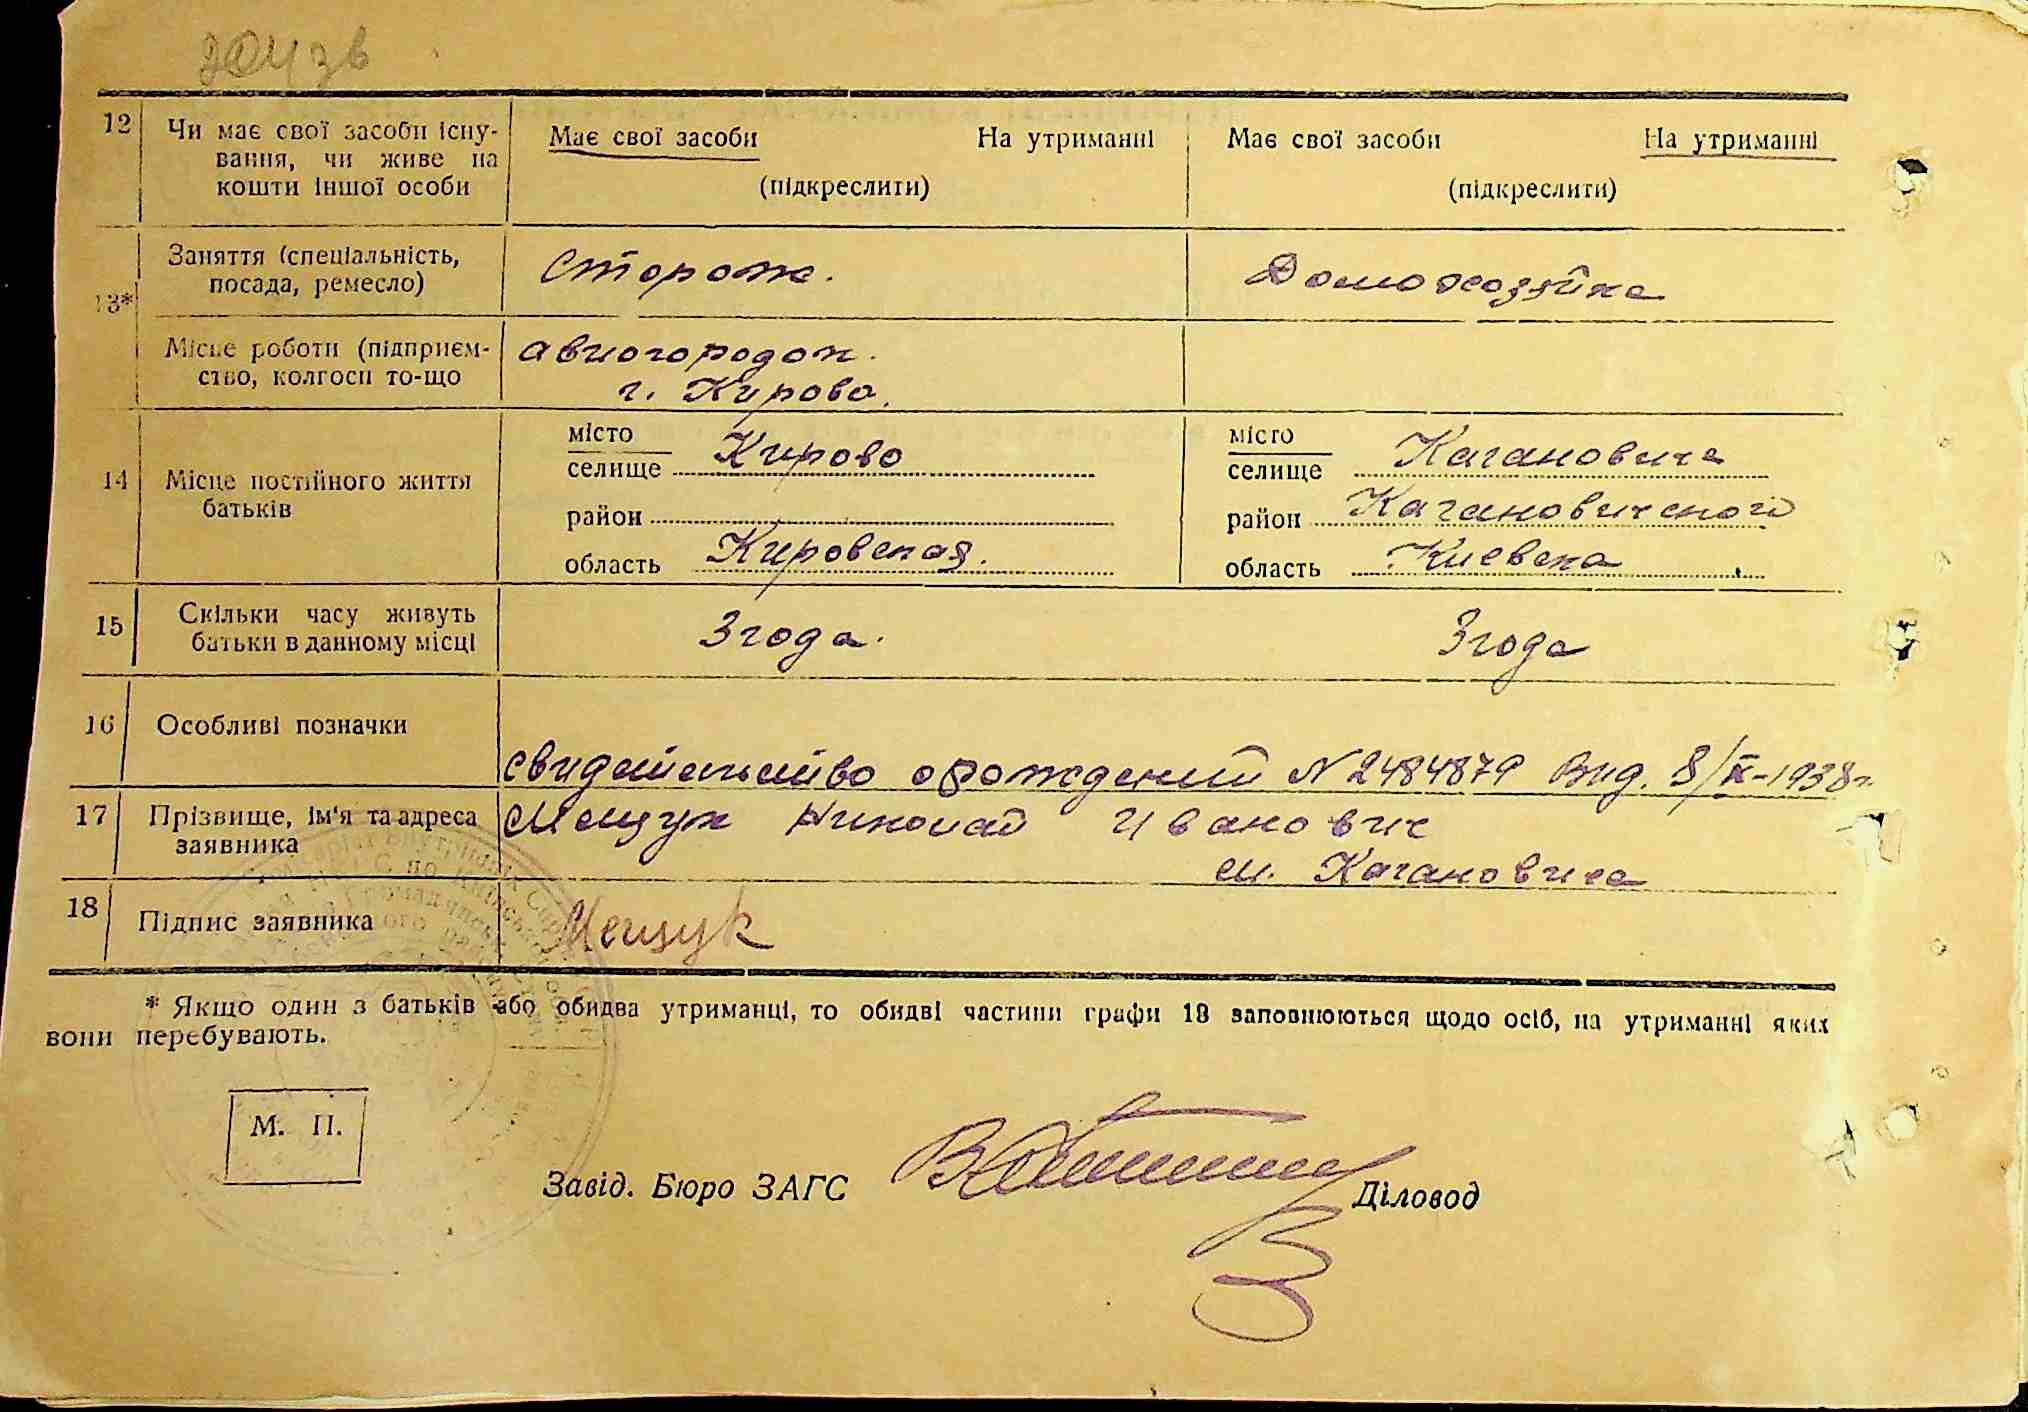 12 Чи має свої засоби існу-
вання, чи живе на
кошти іншої особи
Має свої засоби На утриманні
(підкреслити)
Має свої засоби На утриманні
(підкреслити)
13*
Заняття (спеціальність,
посада, ремесло)
Сторож.
Домохозяйка
Місце роботи (підприєм-
ство, колгосп то-що
авиогородок.
г. Кирово.
14 Місце постійного життя
батьків
місто
селище Кирово
район
область Кировская.
місто
селище Кагановича
район Кагановичского
область Киевска
15 Скільки часу живуть
батьки в данному місці
3 года.
3 года
16 Особливі позначки
свидетельство о рождений N 2484879 Вид. 8/X-1938 г.
17 Прізвище, ім'я та адреса
заявника
Мещук Николай Иванович
м. Кагановича
18 Підпис заявника
Мещук
* Якщо один з батьків або обидва утриманці, то обидві частини графи 13 заповнюються щодо осіб, на утриманні яких
вони перебувають.
М. П.
Завід. Бюро ЗАГС
Діловод